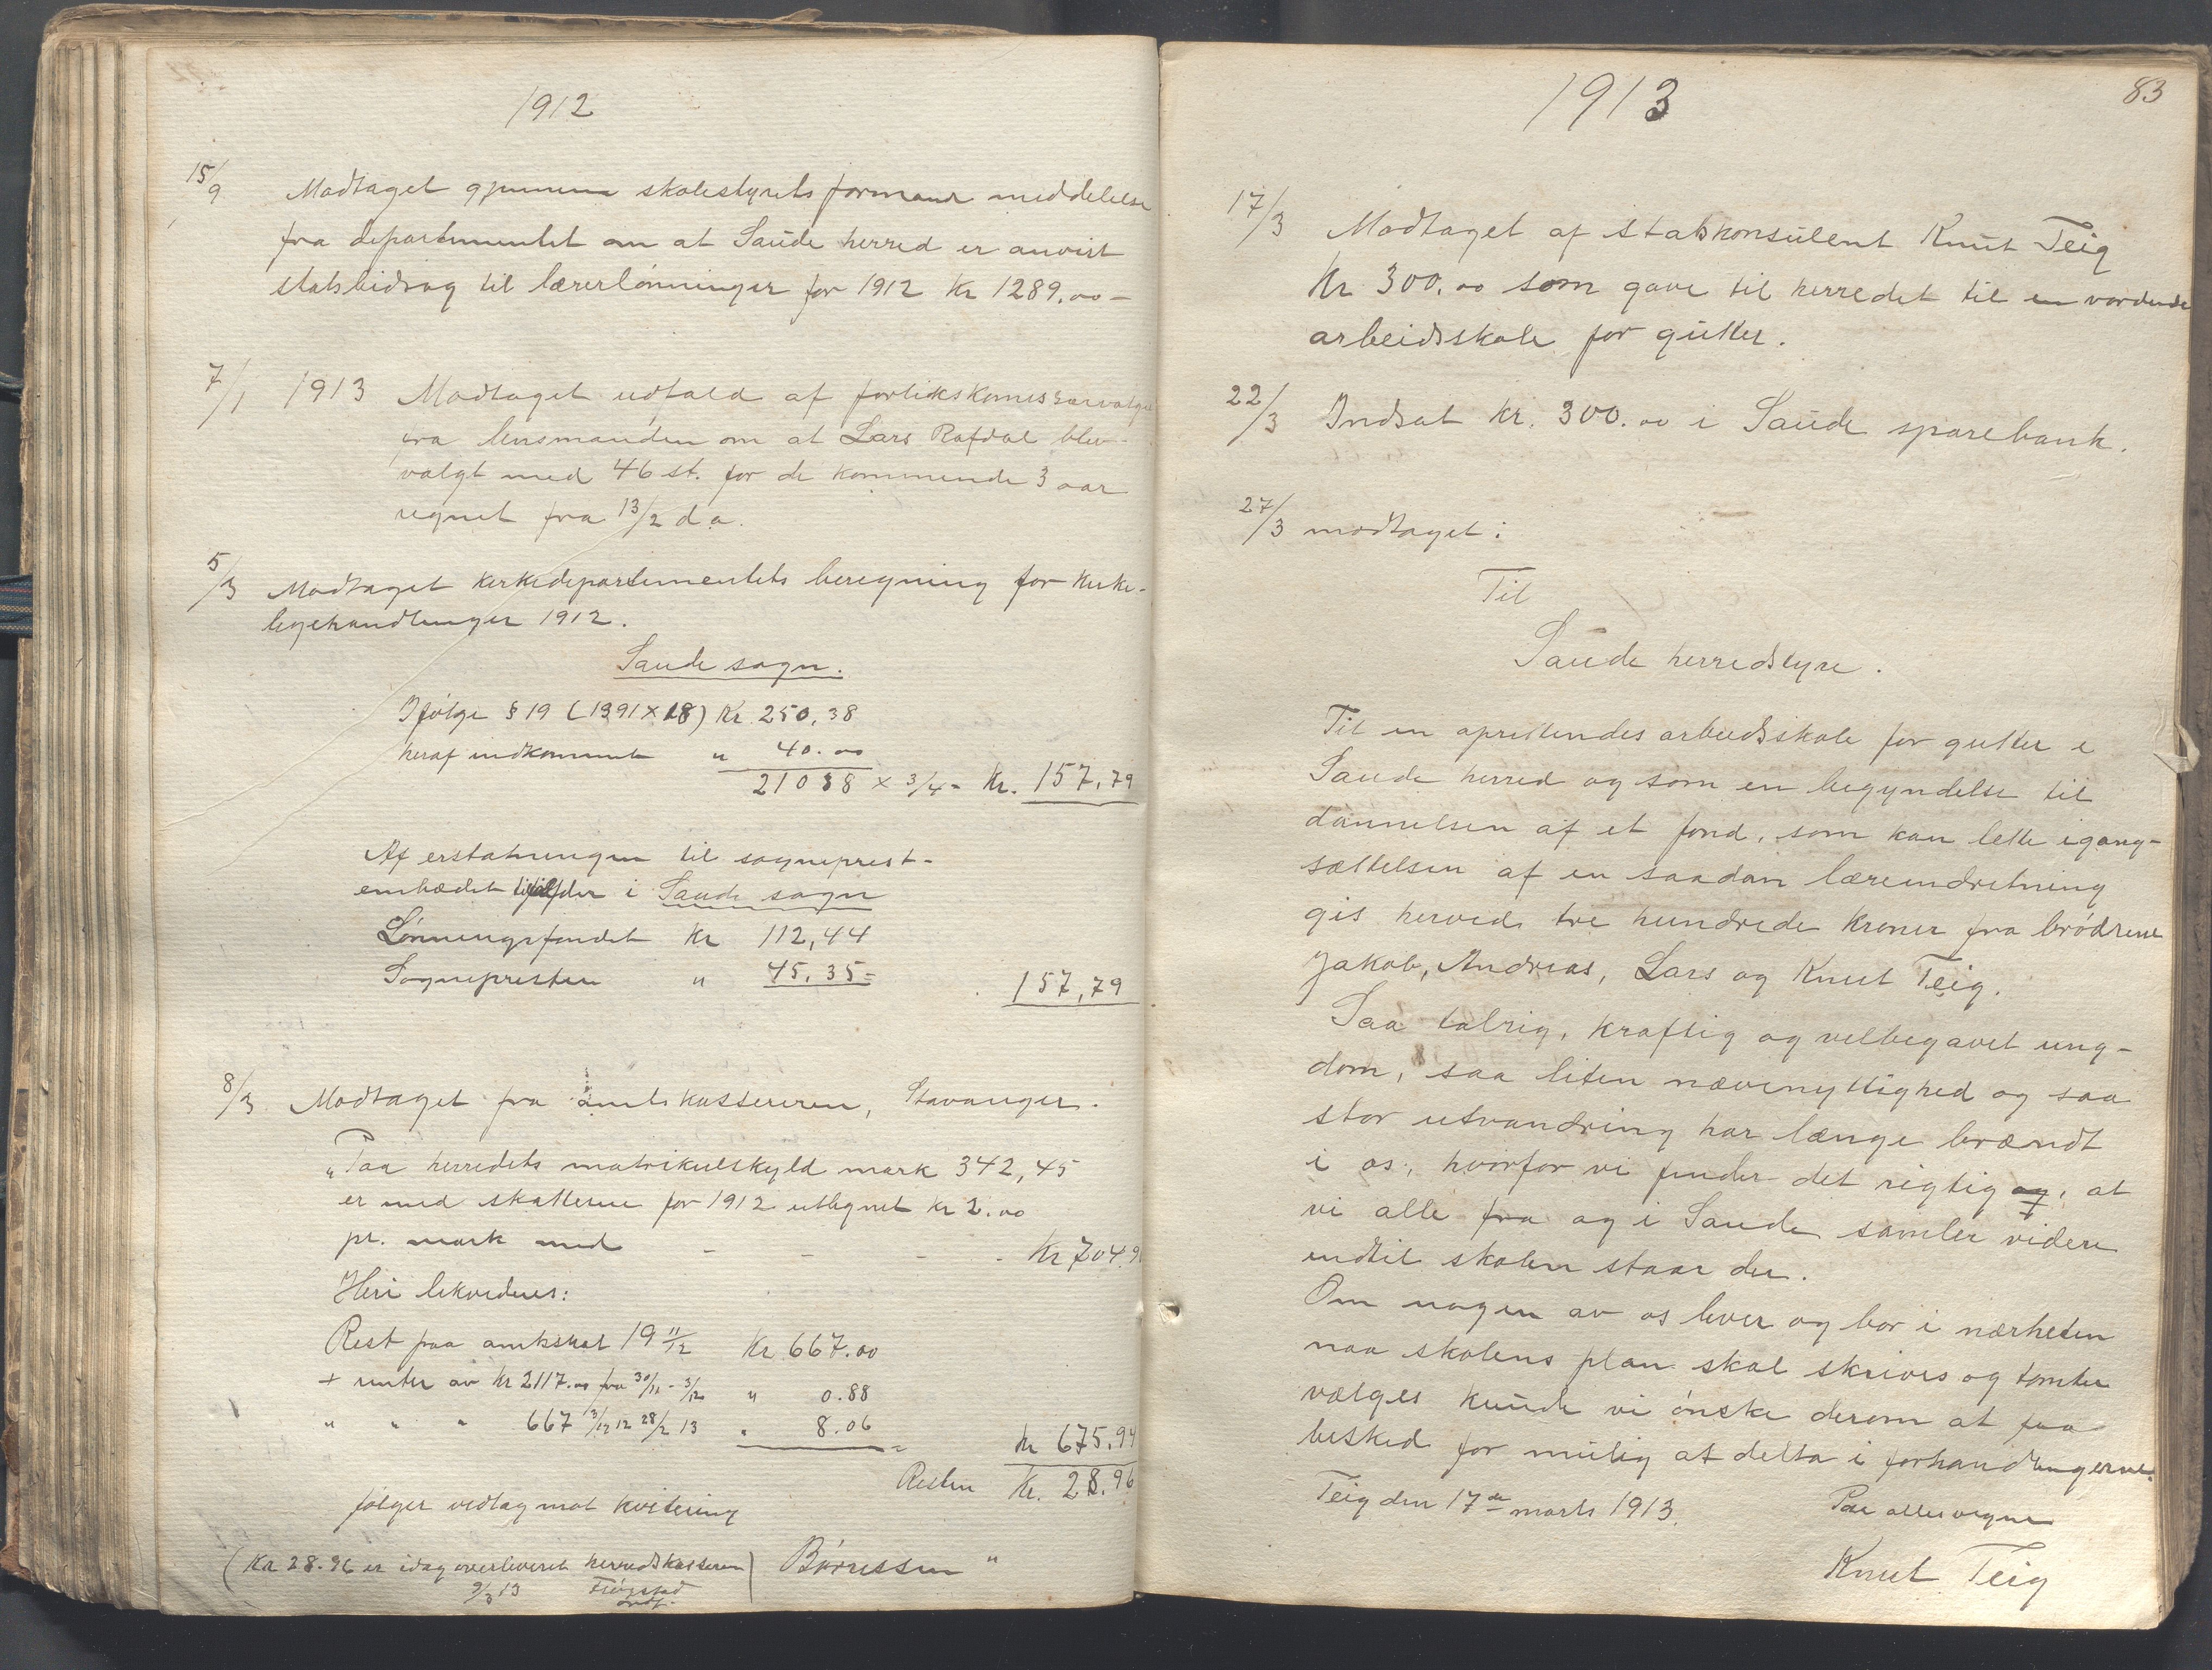 1912
15/9 Modtaget gjennem skolestyrets formand meddelelse
fra departementet om at Saude herred er anvist
statsbidrag til lærerlønninger for 1912 Kr 1289.00 -
7/1 1913 Modtaget udfald af forlikskomissærvalget
fra lensmanden om at Lars Rafdal blev
valgt med 46 st. for de kommende 3 aar
regnet fra 13/2 d.a.
5/3 Modtaget kirkedepartementets beregning for kirke-
ligehandlinger 1912.
Saude sogn.
Ifølge § 19 (1391 x 18) Kr. 250,38
heraf indkommet " 40.00
21038 x 3/4 = Kr. 157,79
Af erstatningen til sogneprest-
embædet tilfalder i Saude sogn
Lønningsfondet Kr 112,44
Sognepresten " 45.35 =
157,79
8/3 Modtaget fra amtskassereren, Stavanger.
"Paa herredets matrikulskyld mark 342,45
er med skatterne for 1912 utlignet Kr 2.00
pr. mark med - - - - Kr 704.9
Heri likvideres:
Rest paa amtskat 19 11/12 Kr 667.00
+ renter av Kr 2117.00 fra 30/11 - 3/12 " 0.88
" " " 667 3/12 12 28/2 13 " 8.06 =
Kr 675.94
Resten Kr. 28.96
følger vedlag mot kvitering
(Kr 28.96 er idag overleveret herredskasseren) Børressen "
9/3 13 Fløgstad
ordf.
83
1913
17/3 Modtaget af statskonsulent Knut Teig
Kr 300.00 som gave til herredet til en vordende
arbeidsskole for gutter.
22/3 Indsat kr. 300.00 i Saude sparebank.
27/3 modtaget:
Til
Saude herredstyre.
Til en oprettendes arbeidsskole for gutter i
Saude herred og som en begyndelse til
dannelsen af et fond, som kan lette igang-
sættelsen af en saadan læreindretning
gis herved tre hundrede kroner fra brødrene
Jakob, Andreas, Lars og Knut Teig.
Saa talrig, kraftig og velbegavet ung-
dom, saa liten nævenyttighed og saa
stor utvandring har længe brændt
i os, hvorfor vi finder det rigtig og, at
vi alle fra og i Saude samler videre
indtil skolen staar der.
Om nogen av os lever og bor i nærheten
naa skolens plan skal skrives og tomter
vælges kunde vi ønske derom at faa
besked for mulig at delta i forhandlingerne.
Teig den 17de marts 1913. Paa alles vegne
Knut Teig